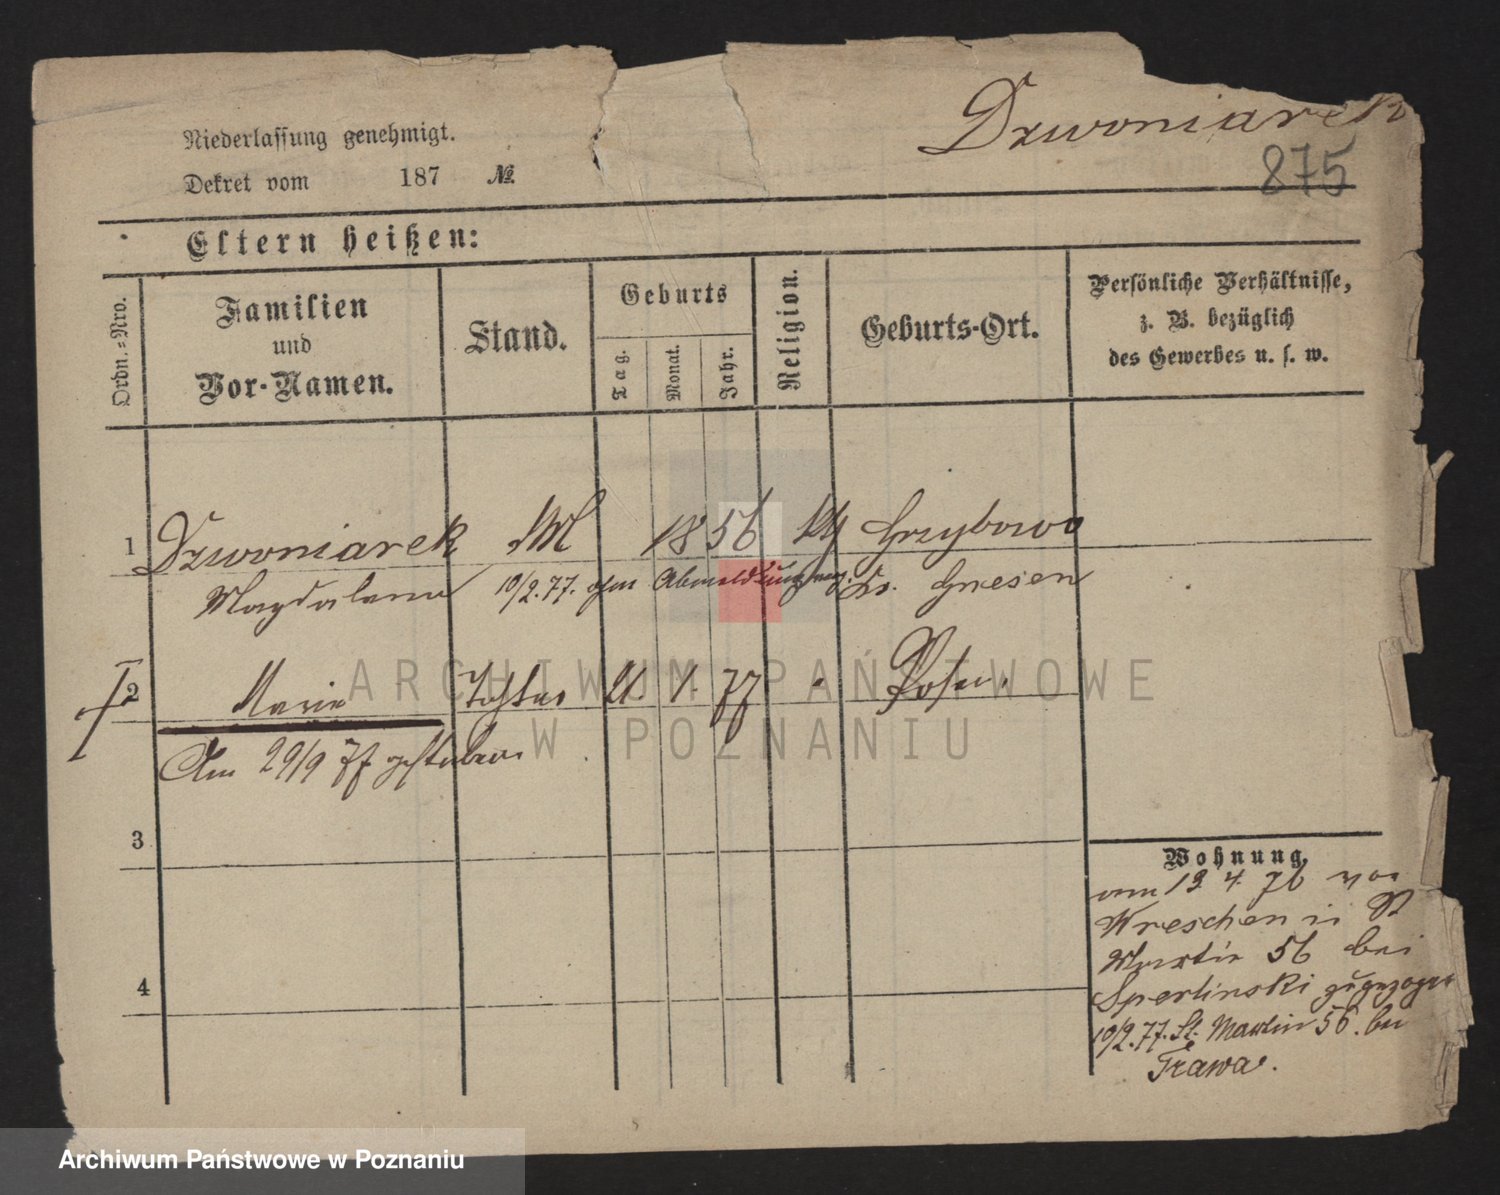 Dzwoniarek
875
Niederlassung genehmigt.
Dekret vom 187 №
Eltern heißen:
Ordn.-Nro.
Familien
und
Vor-Namen.
Stand.
Geburts
Tag.
Monat.
Jahr.
Religion.
Geburts-Ort.
Persönliche Verhältnisse,
z. B. bezüglich
des Gewerbes u. s. w.
1 Dzwoniarek M 1856 kth Grzybowo
Magdalena 10/2.77. ohne Abmeldung Kr. Gnesen
2 Marie Tochter 21. 1. 77 " Posen
Am 29/9 77 gestorben
3
4
Wohnung.
am 19 4. 76 von
Wreschen in St
Martin 56 bei
Sperlinski zugezogen
10/2.77. St. Martin 56. bei
Trawa.
ARCHIWUM PAŃSTWOWE
W POZNANIU
Archiwum Państwowe w Poznaniu